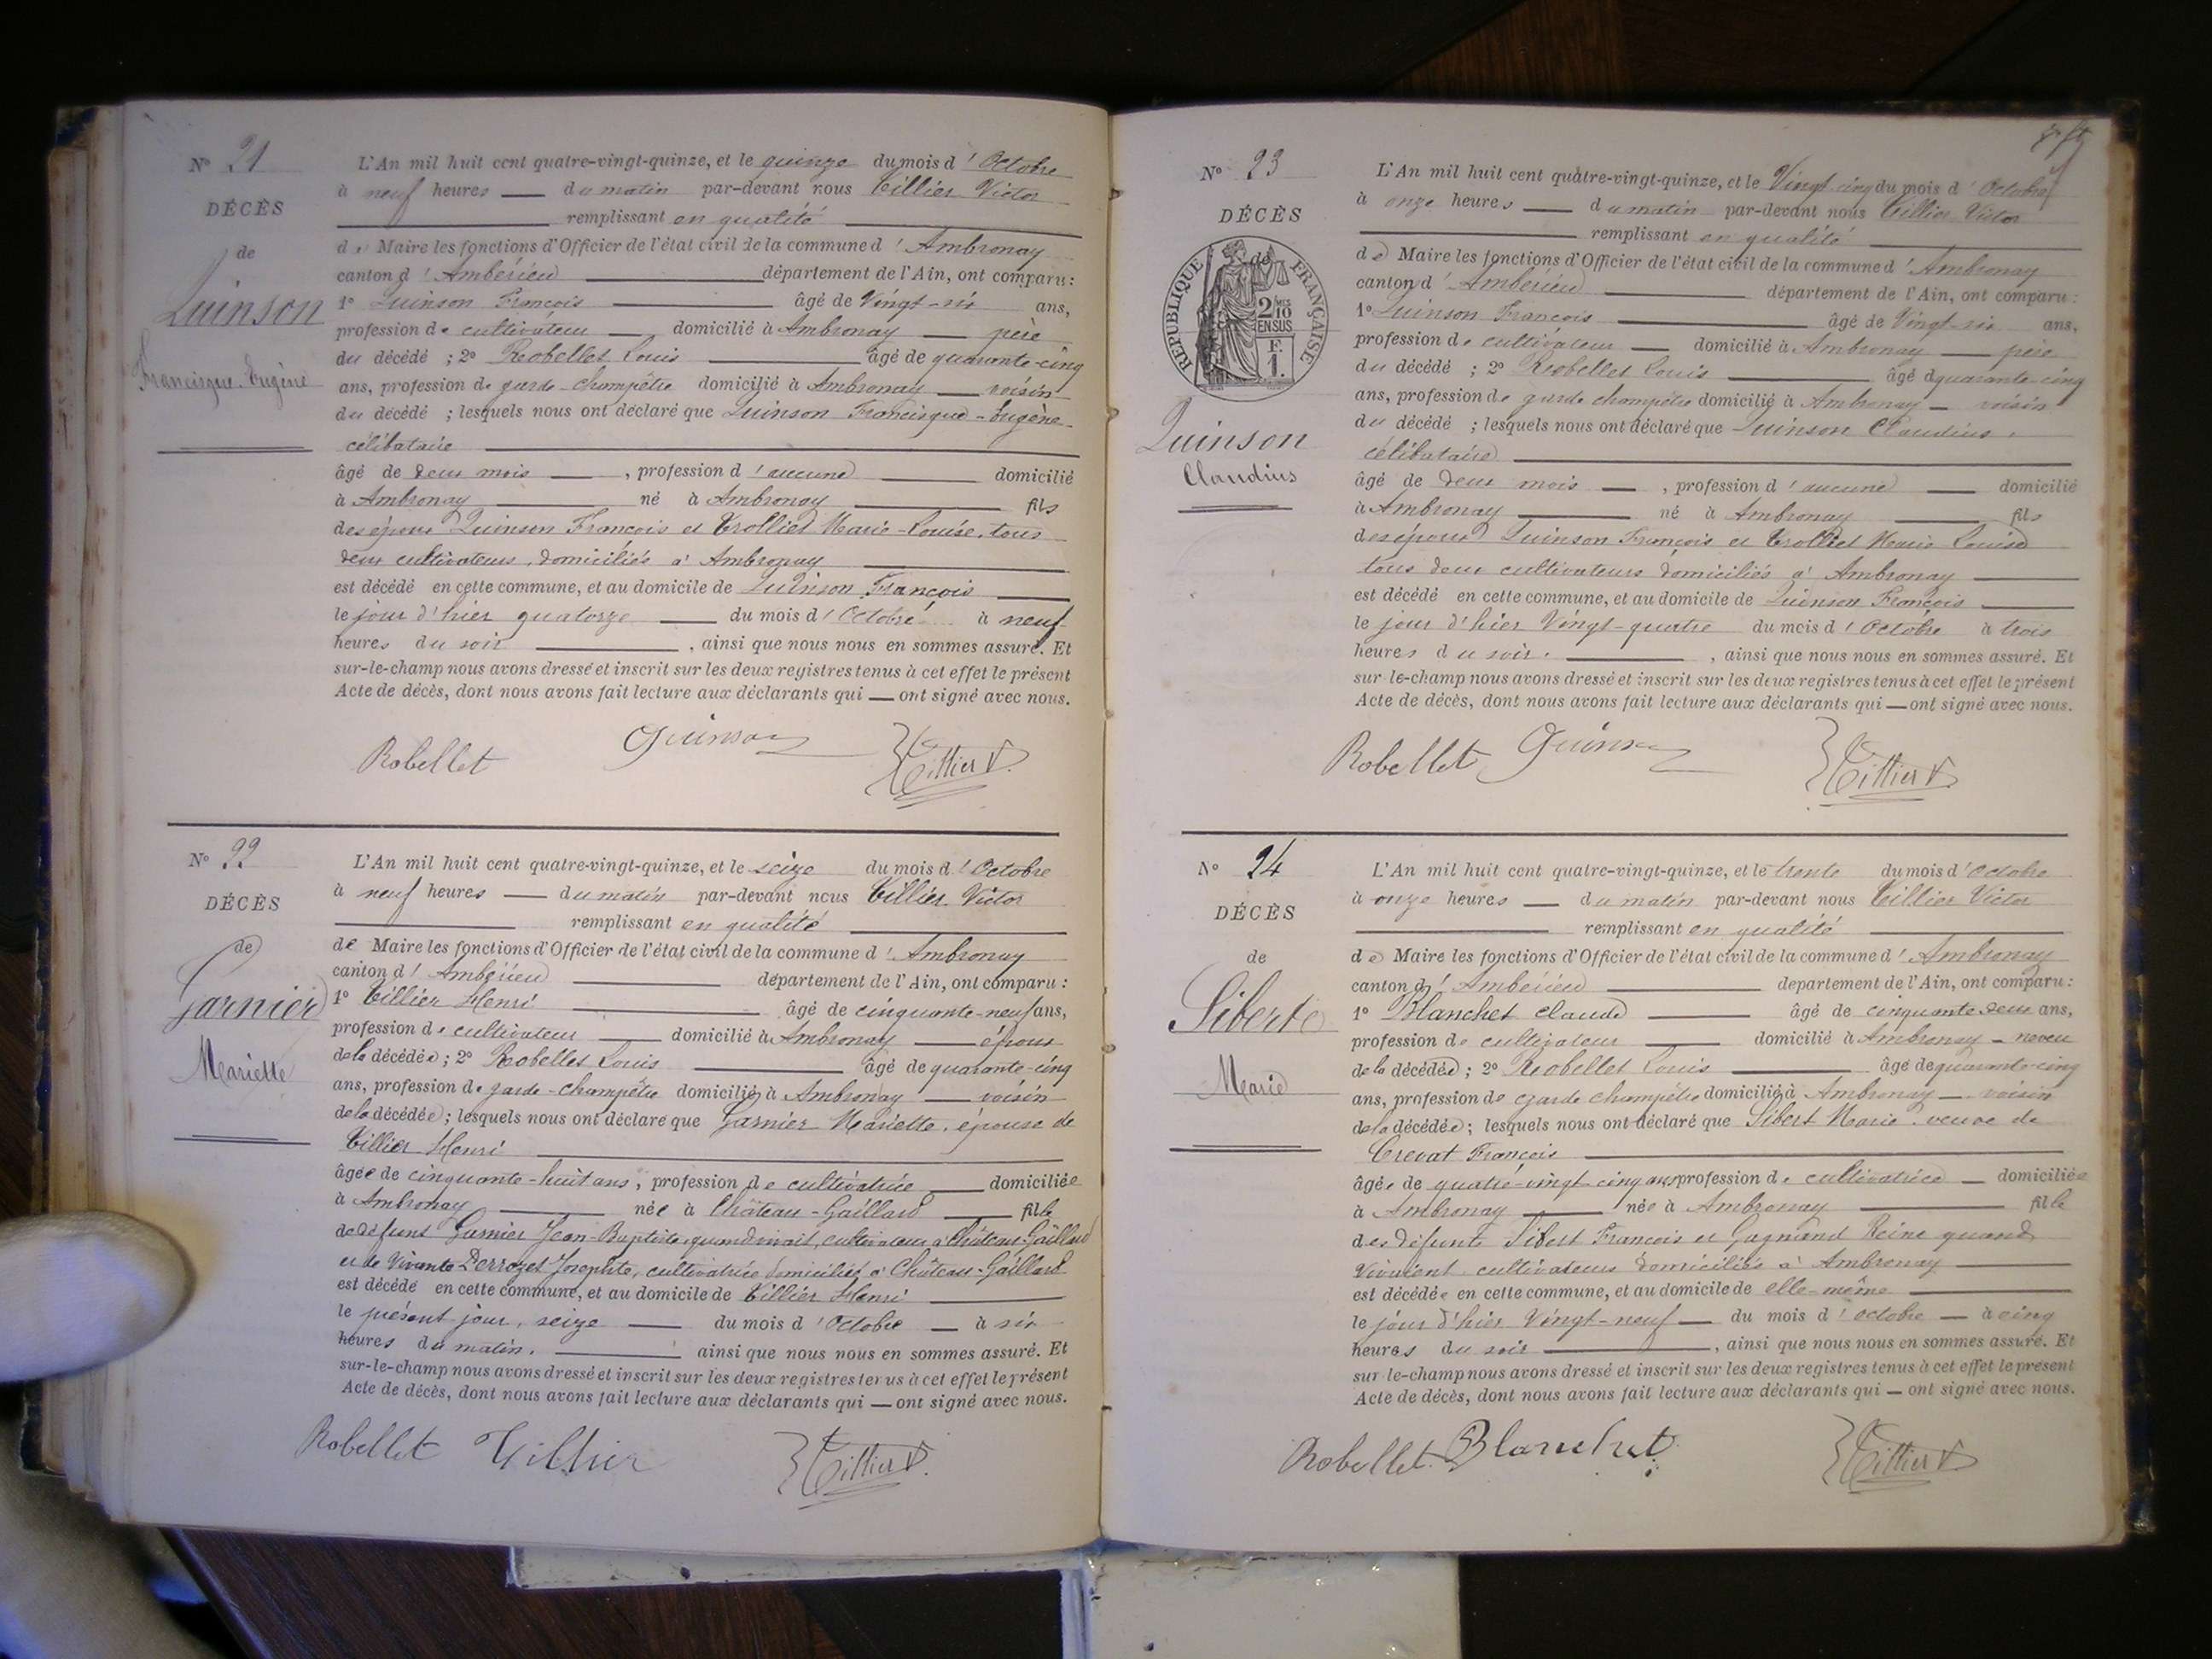 N° 21
DÉCÈS
de
Quinson
Francisque-Eugène
L'An mil huit cent quatre-vingt-quinze, et le quinze du mois d'Octobre
à neuf heures — du matin par-devant nous Tillier Victor
remplissant en qualité
de Maire les fonctions d'Officier de l'état civil de la commune d'Ambronay
canton d'Ambérieu département de l'Ain, ont comparu :
1° Quinson François âgé de Vingt-six ans,
profession de cultivateur — domicilié à Ambronay — père
du décédé ; 2° Robellet Louis âgé de quarante-cinq
ans, profession de garde-champêtre domicilié à Ambronay — voisin
du décédé ; lesquels nous ont déclaré que Quinson Francisque-Eugène
célibataire
âgé de deux mois — , profession d'aucune — domicilié
à Ambronay né à Ambronay fils
des époux Quinson François et Trolliet Marie-Louise, tous
deux cultivateurs, domiciliés à Ambronay
est décédé en cette commune, et au domicile de Quinson François
le jour d'hier quatorze — du mois d'Octobre à neuf
heures du soir , ainsi que nous nous en sommes assuré. Et
sur-le-champ nous avons dressé et inscrit sur les deux registres tenus à cet effet le présent
Acte de décès, dont nous avons fait lecture aux déclarants qui — ont signé avec nous.
Robellet Quinson Tillier V.
N° 22
DÉCÈS
de
Garnier
Mariette
L'An mil huit cent quatre-vingt-quinze, et le seize du mois d'Octobre
à neuf heures — du matin par-devant nous Tillier Victor
remplissant en qualité
de Maire les fonctions d'Officier de l'état civil de la commune d'Ambronay
canton d'Ambérieu département de l'Ain, ont comparu :
1° Tillier Henri âgé de cinquante-neuf ans,
profession de cultivateur — domicilié à Ambronay — époux
de la décédée ; 2° Robellet Louis âgé de quarante-cinq
ans, profession de garde-champêtre domicilié à Ambronay — voisin
de la décédée ; lesquels nous ont déclaré que Garnier Mariette, épouse de
Tillier Henri
âgée de cinquante-huit ans, profession de cultivatrice — domiciliée
à Ambronay née à Château-Gaillard — fille
de défunt Garnier Jean-Baptiste, quand vivait, cultivateur à Château-Gaillard
et de Vivante Perrozet Josephte, cultivatrice domiciliée à Château-Gaillard
est décédé en cette commune, et au domicile de Tillier Henri
le présent jour, seize — du mois d'Octobre — à six
heures du matin. ainsi que nous nous en sommes assuré. Et
sur-le-champ nous avons dressé et inscrit sur les deux registres tenus à cet effet le présent
Acte de décès, dont nous avons fait lecture aux déclarants qui — ont signé avec nous.
Robellet Tillier Tillier V.
N° 23
DÉCÈS
de
RÉPUBLIQUE FRANÇAISE
2/10 MES
EN SUS
F.
1.
Quinson
Claudius
L'An mil huit cent quatre-vingt-quinze, et le Vingt-cinq du mois d'Octobre
à onze heures — du matin par-devant nous Tillier Victor
remplissant en qualité
de Maire les fonctions d'Officier de l'état civil de la commune d'Ambronay
canton d'Ambérieu département de l'Ain, ont comparu :
1° Quinson François âgé de Vingt-six ans,
profession de cultivateur — domicilié à Ambronay — père
du décédé ; 2° Robellet Louis âgé de quarante-cinq
ans, profession de garde champêtre domicilié à Ambronay — voisin
du décédé ; lesquels nous ont déclaré que Quinson Claudius,
célibataire
âgé de deux mois — , profession d'aucune — domicilié
à Ambronay né à Ambronay fils
des époux Quinson François et Trolliet Marie Louise
tous deux cultivateurs domiciliés à Ambronay
est décédé en cette commune, et au domicile de Quinson François
le jour d'hier Vingt-quatre du mois d'Octobre à trois
heures du soir. , ainsi que nous nous en sommes assuré. Et
sur-le-champ nous avons dressé et inscrit sur les deux registres tenus à cet effet le présent
Acte de décès, dont nous avons fait lecture aux déclarants qui — ont signé avec nous.
Robellet Quinson Tillier V.
N° 24
DÉCÈS
de
Sibert
Marie
L'An mil huit cent quatre-vingt-quinze, et le trente du mois d'octobre
à onze heures — du matin par-devant nous Tillier Victor
remplissant en qualité
de Maire les fonctions d'Officier de l'état civil de la commune d'Ambronay
canton d'Ambérieu département de l'Ain, ont comparu :
1° Blanchet Claude âgé de cinquante deux ans,
profession de cultivateur — domicilié à Ambronay — neveu
de la décédée ; 2° Robellet Louis âgé de quarante-cinq
ans, profession de garde champêtre domicilié à Ambronay — voisin
de la décédée ; lesquels nous ont déclaré que Sibert Marie veuve de
Crevat François
âgée de quatre-vingt-cinq ans profession de cultivatrice — domiciliée
à Ambronay née à Ambronay fille
des défunts Sibert François et Gagnand Reine quand
vivaient cultivateurs domiciliés à Ambronay
est décédée en cette commune, et au domicile de elle-même
le jour d'hier Vingt-neuf — du mois d'octobre — à cinq
heures du soir , ainsi que nous nous en sommes assuré. Et
sur-le-champ nous avons dressé et inscrit sur les deux registres tenus à cet effet le présent
Acte de décès, dont nous avons fait lecture aux déclarants qui — ont signé avec nous.
Robellet Blanchet Tillier V